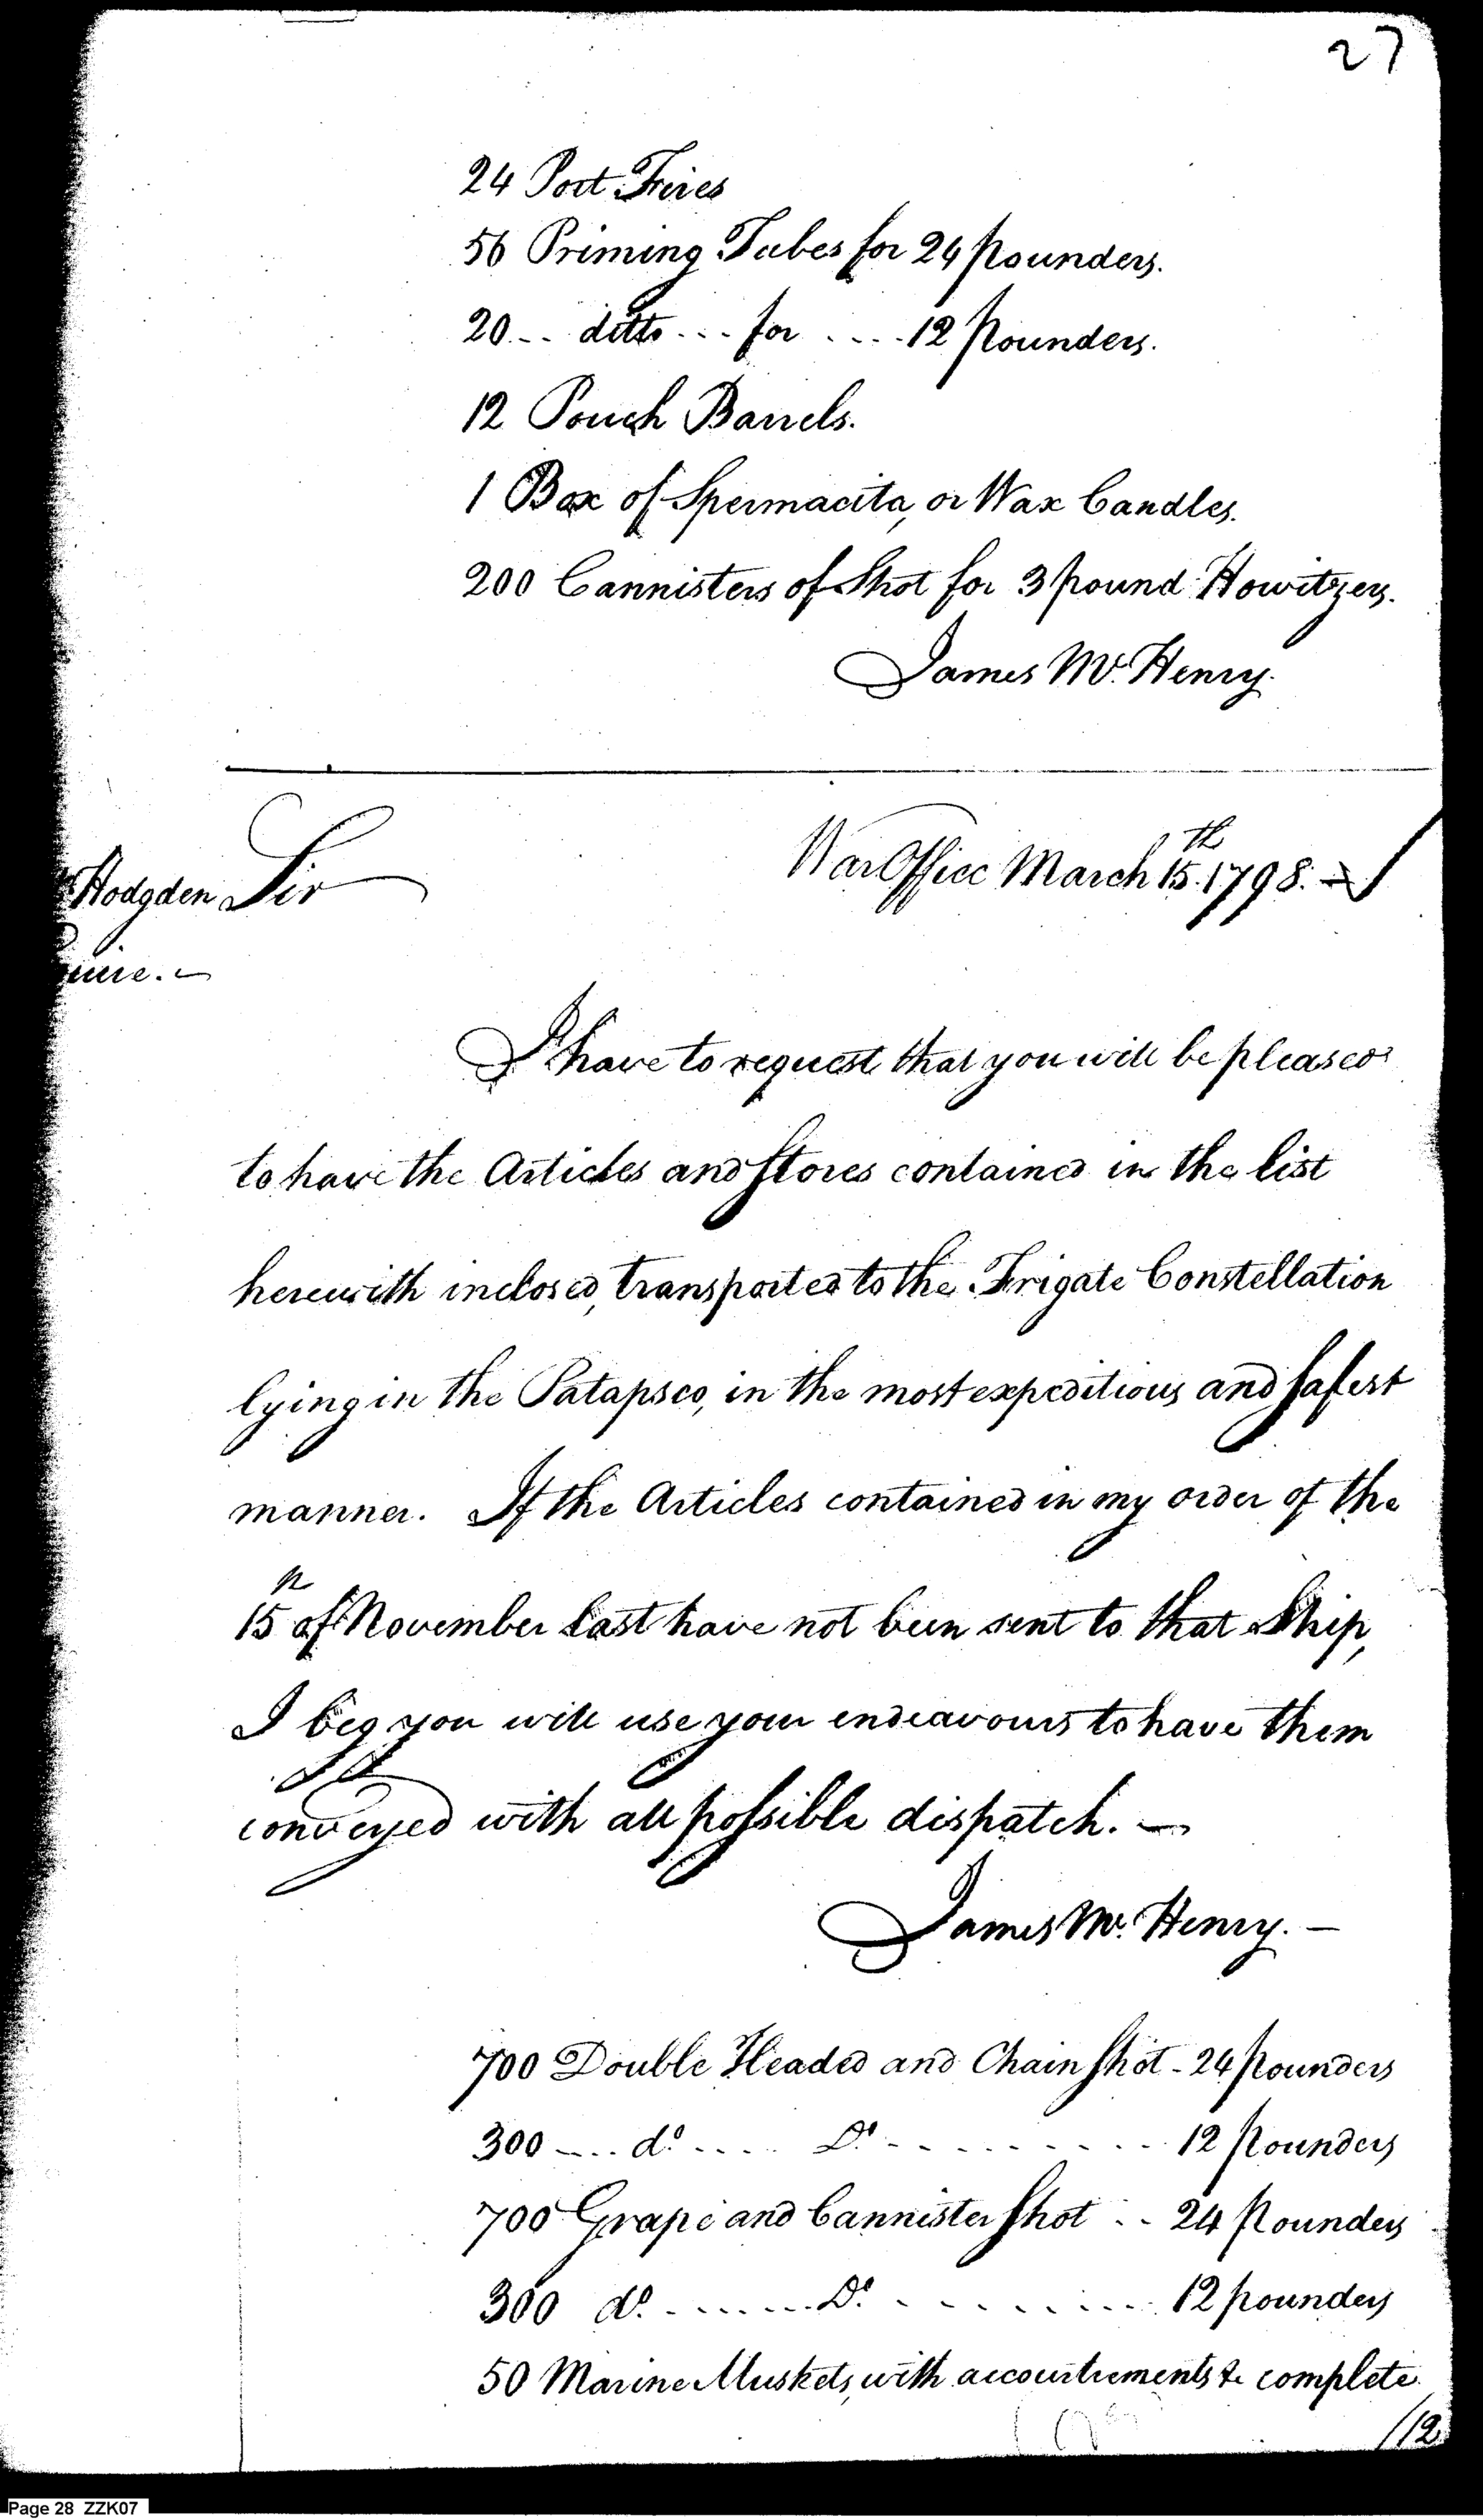 27
24 Port Fires
56 Priming Tubes for 24 pounders.
20 -- ditto --- for ---- 12 Pounders.
12 Pouch Barrels.
1 Box of Spermacita, or Wax Candles.
200 Cannisters of Shot for 3 pound Howitzers.
James McHenry.
War Office March 15th 1798.
Hodgden Sir
uire.
I have to request that you will be pleased
to have the Articles and Stores contained in the list
herewith inclosed, transported to the Frigate Constellation
lying in the Patapsco, in the most expeditious and safest
manner. If the Articles contained in my order of the
15th of November last have not been sent to that Ship,
I beg you will use your endeavours to have them
conveyed with all possible dispatch. —
James McHenry. —
700 Double Headed and Chain Shot - 24 pounders
300 ---- do ---- Do ---------- 12 Pounders
700 Grape and Cannister Shot -- 24 Pounders
300 do ------ Do ---------- 12 pounders
50 Marine Muskets, with accourtrements &c complete
/12
Page 28 ZZK07